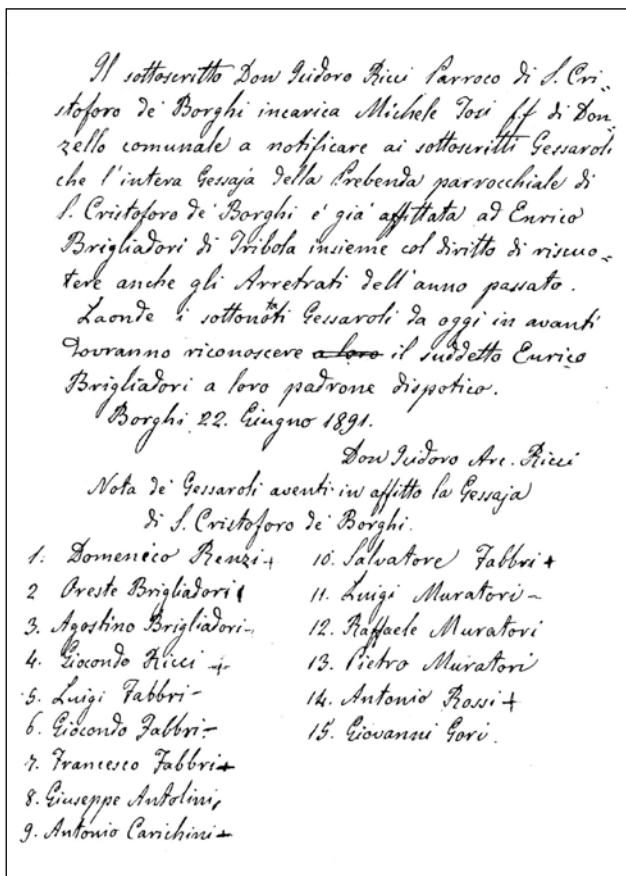 Il sottoscritto Don Isidoro Ricci Parroco di S. Cri-
stoforo de' Borghi incarica Michele Tosi f.f di Don-
zello comunale a notificare ai sottoscritti Gessaroli
che l'intera Gessaja della Prebenda parrocchiale di
S. Cristoforo de' Borghi e' già affittata ad Enrico
Brigliadori di Tribola insieme col diritto di riscuo-
tere anche gli Arretrati dell'anno passato.
Laonde i sottonotati Gessaroli da oggi in avanti
dovranno riconoscere a loro il suddetto Enrico
Brigliadori a loro padrone dispotico.
Borghi 22. Giugno 1891.
Don Isidoro Arc. Ricci
Nota de' Gessaroli aventi in affitto la Gessaja
di S. Cristoforo de' Borghi.
1. Domenico Renzi +
2 Oreste Brigliadori
3. Agostino Brigliadori -
4. Giocondo Ricci +
5. Luigi Fabbri -
6. Giocondo Fabbri -
7. Francesco Fabbri +
8. Giuseppe Antolini
9. Antonio Carichini +
10. Salvatore Fabbri +
11. Luigi Muratori -
12. Raffaele Muratori
13. Pietro Muratori
14. Antonio Rossi +
15. Giovanni Gori.